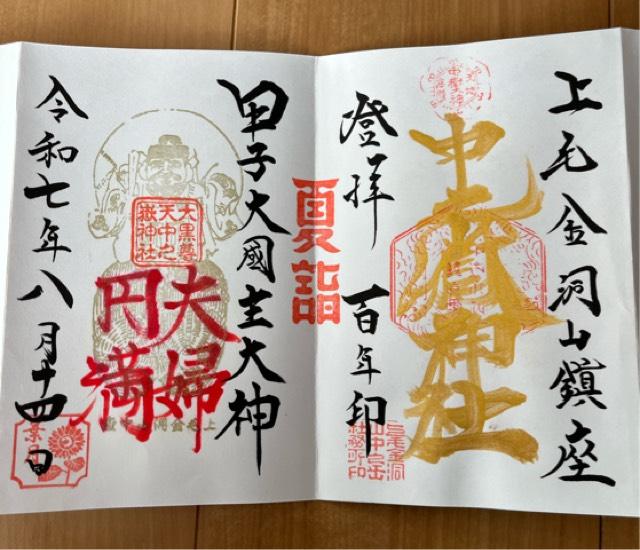 上毛金洞山鎮座
中之嶽神社
登拝 百年印
夏詣
甲子大國主大神
大黒尊
天中之
嶽神社
夫婦
円満
令和七年八月十四日